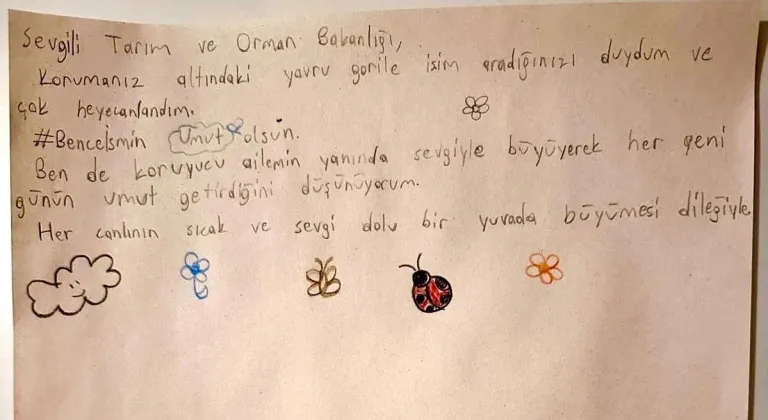 Sevgili Tarım ve Orman Bakanlığı,
Korumanız altındaki yavru gorile isim aradığınızı duydum ve
çok heyecanlandım.
#Benceİsmin Umut olsun.
Ben de koruyucu ailemin yanında sevgiyle büyüyerek her yeni
günün umut getirdiğini düşünüyorum.
Her canlının sıcak ve sevgi dolu bir yuvada büyümesi dileğiyle